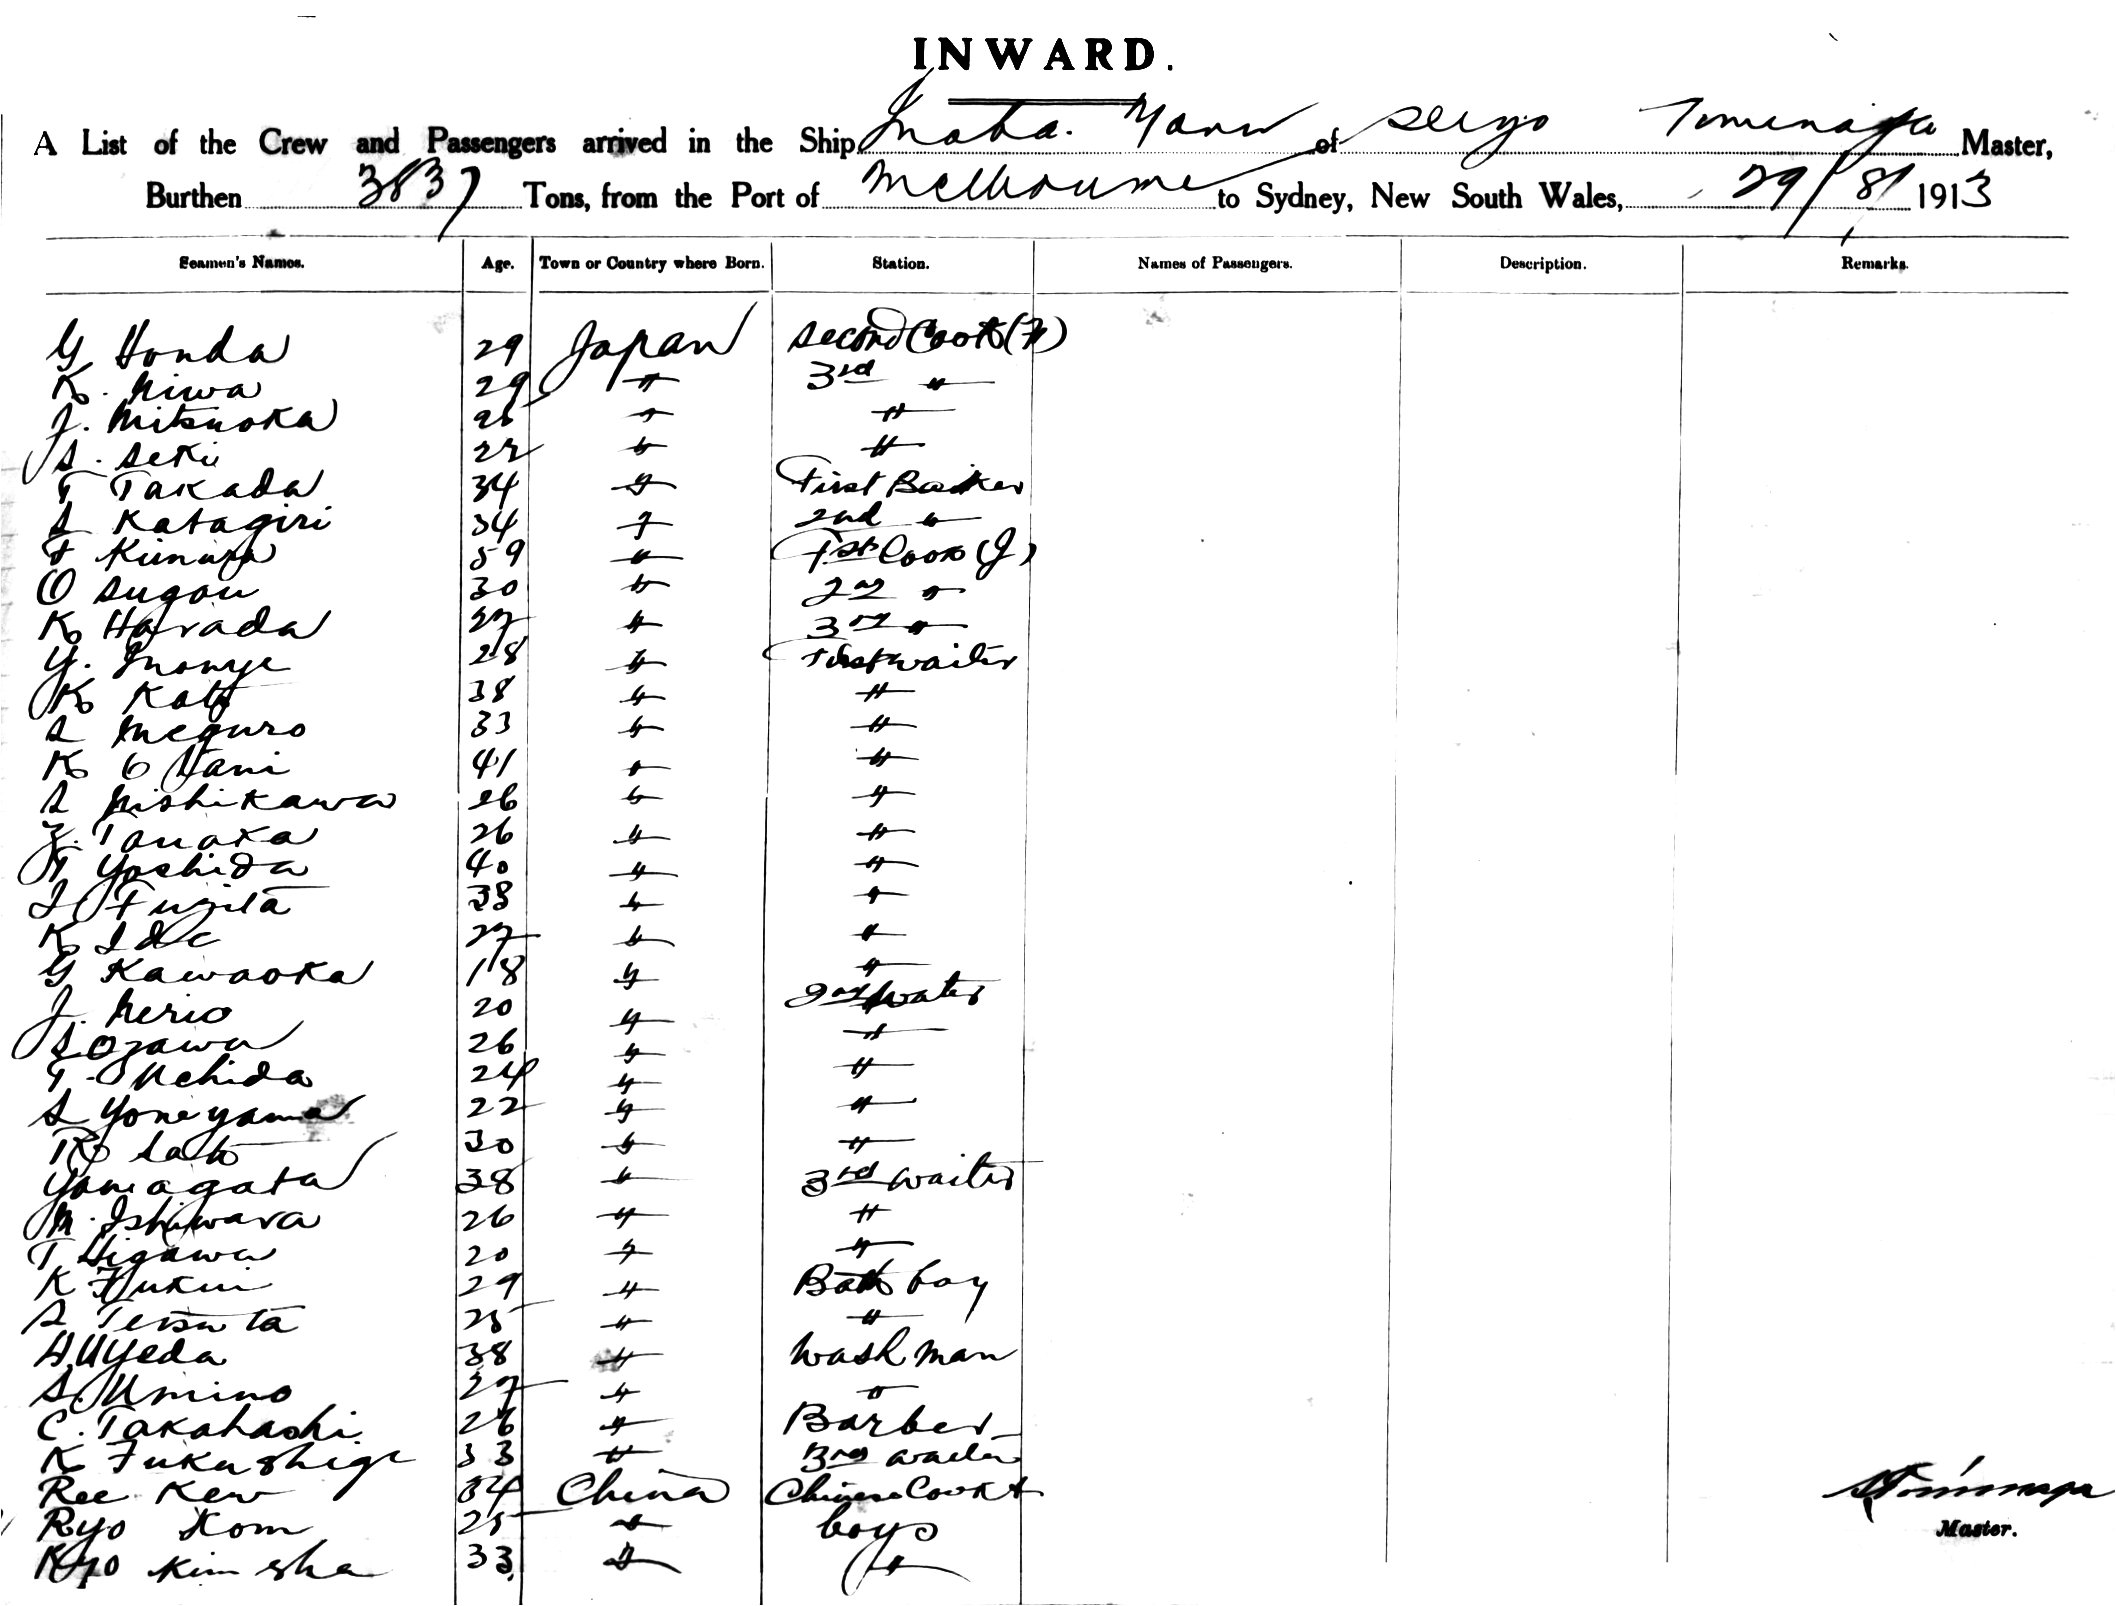 INWARD.
A List of the Crew and Passengers arrived in the Ship Inaba. Maru of Seiyo Tominaga Master,
Burthen 3837 Tons, from the Port of Melbourne to Sydney, New South Wales, 29/8/1913
Seamen's Names. Age. Town or Country where Born. Station. Names of Passengers. Description. Remarks.
G Honda 29 Japan Second Cook (F)
K. Niwa 29 " 3rd "
J. Mitsuoka 26 " "
S. Seki 22 " "
T Takada 34 " First Baker
S Katagiri 34 " 2nd "
F Kimura 59 " 1st Cook (J)
O Sugou 30 " 2nd "
K Harada 27 " 3rd "
Y. Inouye 28 " First waiter
K Kato 38 " "
S Meguro 33 " "
K Otani 41 " "
S Nishikawa 26 " "
Z. Tanaka 26 " "
T Yoshida 40 " "
I Fujita 38 " "
K Ide 27 " "
G Kawaoka 18 " "
J. Nerio 20 " 2nd waiter
S Ozawa 26 " "
T. Uchida 24 " "
S Yoneyama 22 " "
K Sato 30 " "
Yamagata 38 " 3rd waiter
M. Ishiwara 26 " "
T Higawa 20 " "
K Fukui 29 " Bath boy
S Tersuta 25 " "
H. Uyeda 38 " Wash man
S. Umino 27 " "
C. Takahashi 26 " Barber
K Fukushige 33 " 3rd waiter
Ree Kew 34 China Chinese Cook &
Ryo Kom 25 " boys
Kyo Kim sha 33 " "
S Tominaga
Master.